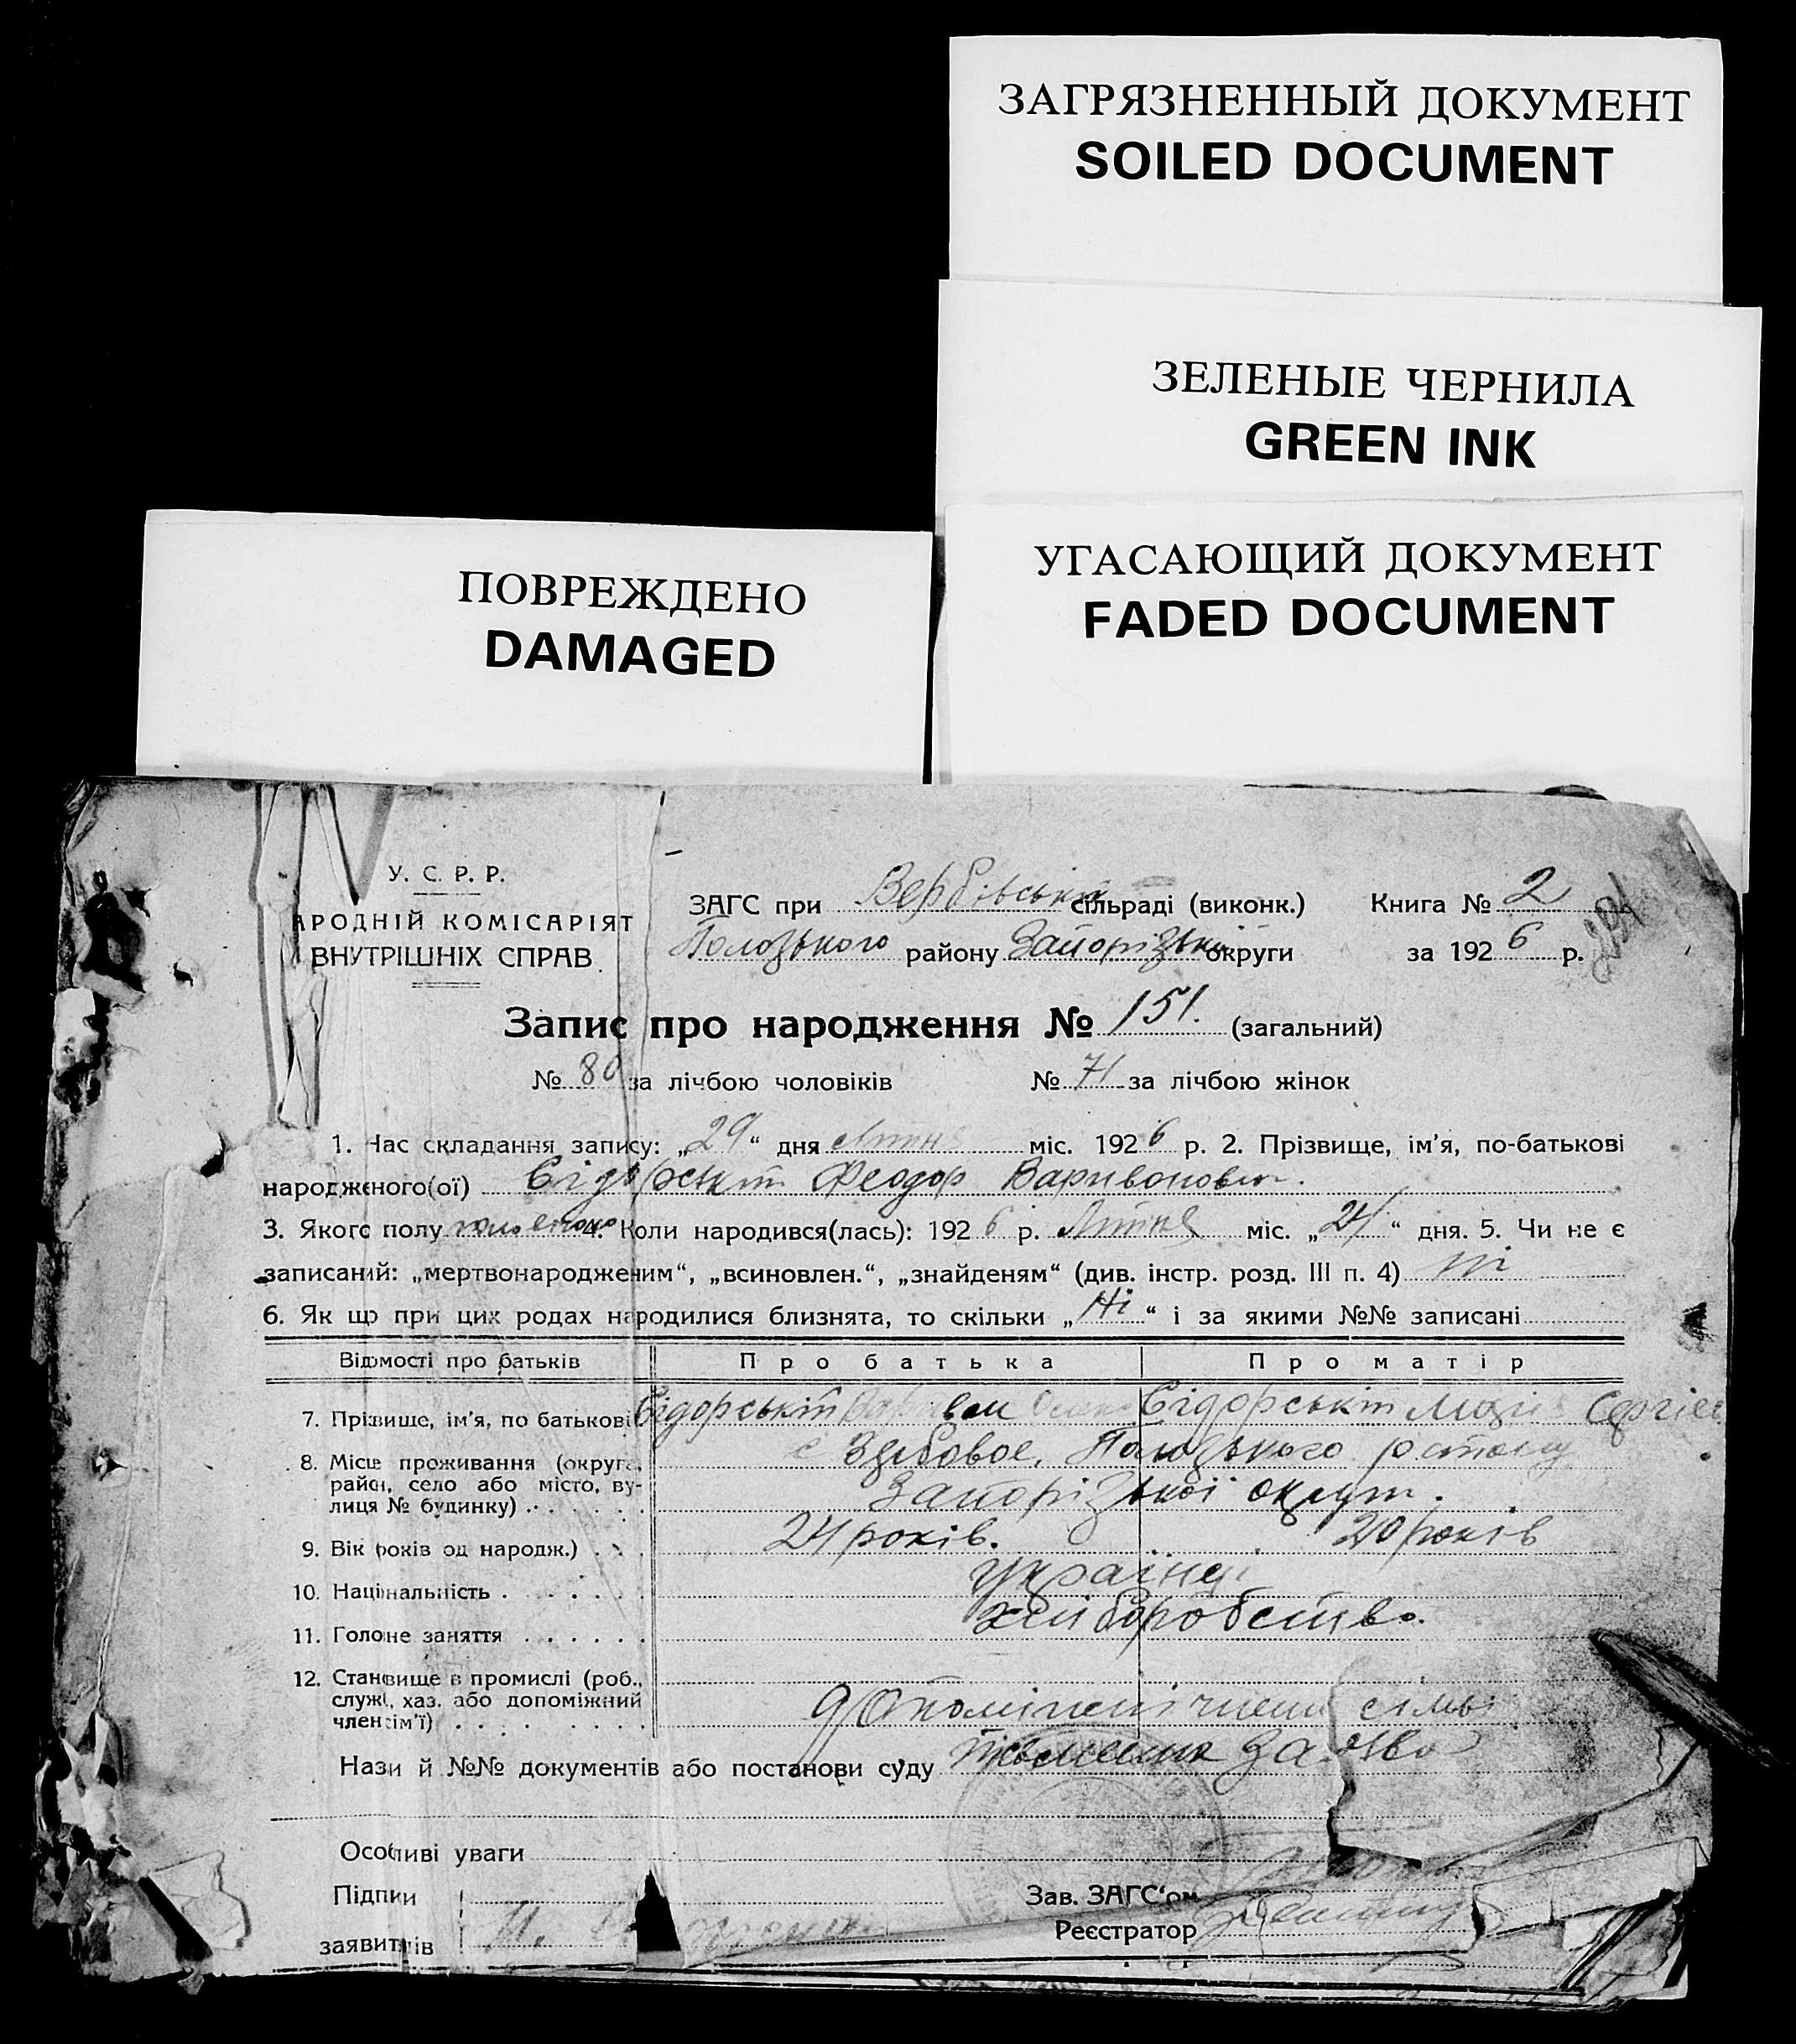 ЗАГРЯЗНЕННЫЙ ДОКУМЕНТ
SOILED DOCUMENT
ЗЕЛЕНЫЕ ЧЕРНИЛА
GREEN INK
УГАСАЮЩИЙ ДОКУМЕНТ
FADED DOCUMENT
ПОВРЕЖДЕНО
DAMAGED
У. С. Р. Р.
АРОДНІЙ КОМІСАРІЯТ
ВНУТРІШНІХ СПРАВ
ЗАГС при Вербівській сільраді (виконк.) Книга № 2
району Запорізької округи за 1926 р.
Запис про народження № 151. (загальний)
№ 80 за лічбою чоловіків № 71 за лічбою жінок
1. Час складання запису: „29“ дня міс. 1926 р. 2. Прізвище, ім’я, по-батькові
народженого(ої) Феодор Варивонович.
3. Якого полу 4. Коли народився(лась): 1926 р. міс. „24“ дня. 5. Чи не є
записаний: „мертвонародженим“, „всиновлен.“, „знайденям“ (див. інстр. розд. III п. 4) ні
6. Як що при цих родах народилися близнята, то скільки „Ні“ і за якими №№ записані
Відомості про батьків Про батька Про матір
7. Прізвище, ім’я, по батькові
8. Місце проживання (округа, район, село або місто, вулиця № будинку)
Запорізької округи.
9. Вік (років од народж.) 24 років. 20 років
10. Національність українці
11. Головне заняття хліборобство.
12. Становище в промислі (роб., служ., хаз. або допоміжний член сім’ї) сімьі
Назви й №№ документів або постанови суду заява
Особливі уваги
Підписи заявителів
Зав. ЗАГС‘ом
Реєстратор